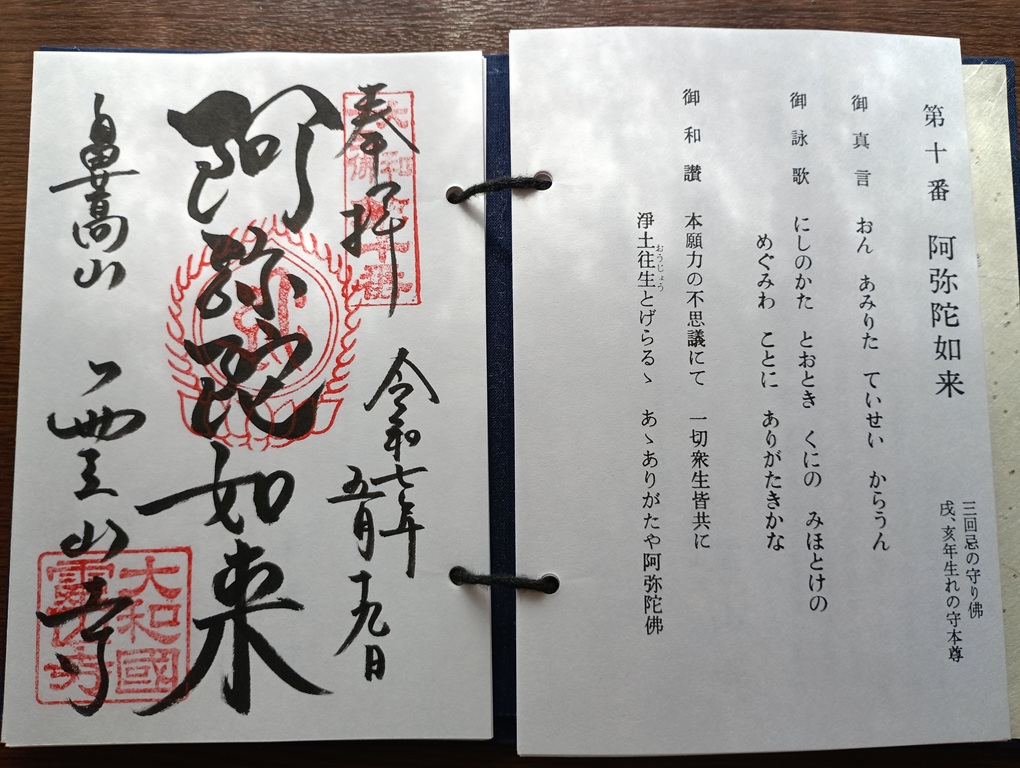 第十番 阿弥陀如来
三回忌の守り佛
戌、亥年生れの守本尊
御真言 おん あみりた ていせい からうん
御詠歌 にしのかた とおとき くにの みほとけの
めぐみわ ことに ありがたきかな
御和讃 本願力の不思議にて 一切衆生皆共に
浄土往生とげらるゝ あゝありがたや阿弥陀佛
おうじょう
奉拝
令和七年
五月十九日
阿弥陀如来
鼻高山 霊山寺
大和國